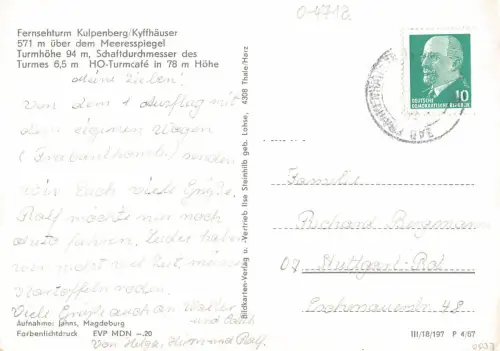 0-4712
Fernsehturm Kulpenberg/Kyffhäuser
571 m über dem Meeresspiegel
Turmhöhe 94 m, Schaftdurchmesser des
Turmes 6,5 m HO-Turmcafé in 78 m Höhe
Meine Lieben!
Von dem 1 Ausflug mit
dem eigenen Wagen
senden
wir Euch viele Grüße,
Ralf möchte nur noch
Auto fahren. Leider haben
wir nicht viel Zeit, müssen
Kartoffeln roden.
Viele Grüße auch an Walter
und
von Helga, und Ralf.
Aufnahme: Jahns, Magdeburg
Farbenlichtdruck EVP MDN -.20
Bildkarten-Verlag u. -Vertrieb Ilse Steinhilb geb. Lohse, 4308 Thale/Harz
10
DEUTSCHE
DEMOKRATISCHE REPUBLIK
Familie
Richard Bergmann
07 Stuttgart-Rot
48
III/18/197 P 4/67